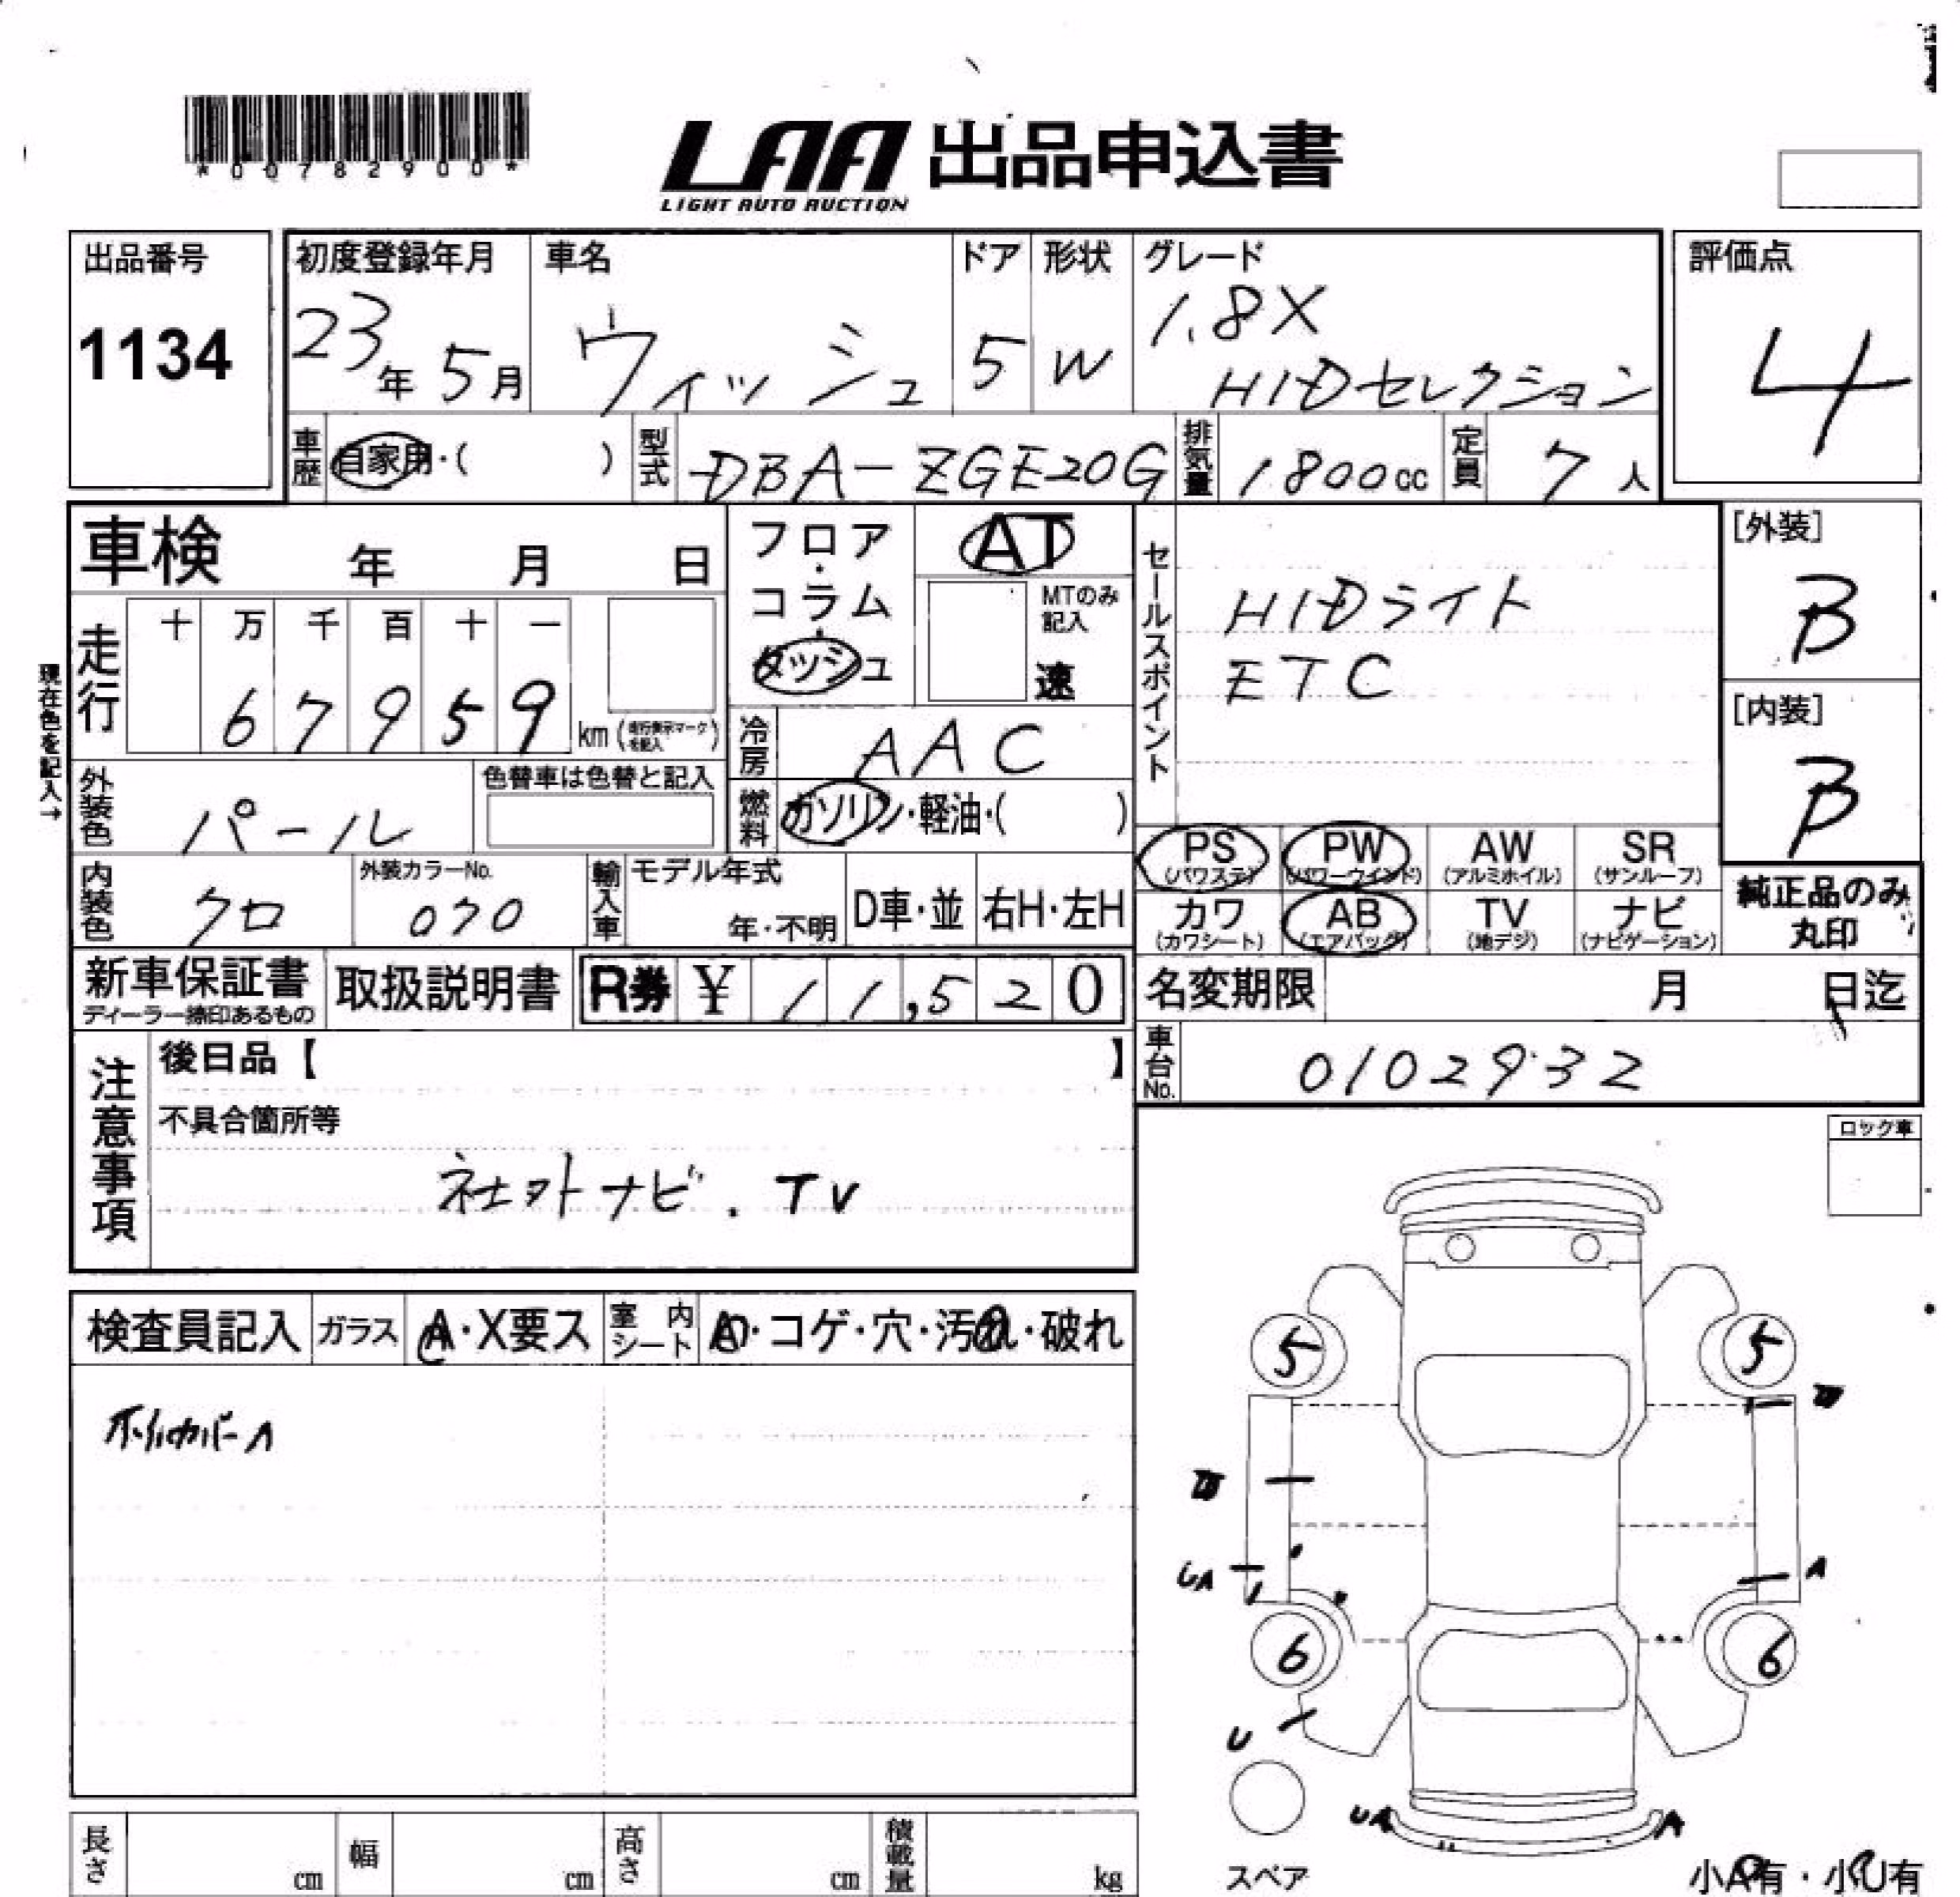 *00782900*
LAA 出品申込書
LIGHT AUTO AUCTION
出品番号
1134
初度登録年月
23年 5月
車名
ウィッシュ
ドア
5
形状
W
グレード
1.8X
HIDセレクション
評価点
4
車歴 自家用・( )
型式 DBA-ZGE20G
排気量 1800cc
定員 7人
車検 年 月 日
フロア・コラム・ダッシュ
AT
MTのみ記入
速
セールスポイント
HIDライト
ETC
[外装]
B
[内装]
B
現在色を記入→
走行
十 万 千 百 十 一
6 7 9 5 9 km (走行表示マークを記入)
冷房 AAC
外装色 パール
色替車は色替と記入
燃料 ガソリン・軽油・( )
PS (パワステ)
PW (パワーウインド)
AW (アルミホイル)
SR (サンルーフ)
カワ (カワシート)
AB (エアバッグ)
TV (地デジ)
ナビ (ナビゲーション)
純正品のみ
丸印
内装色 クロ
外装カラーNo.
070
輸入車
モデル年式
年・不明
D車・並
右H・左H
新車保証書
ディーラー捺印あるもの
取扱説明書
R券 ¥ 11,520
名変期限 月 日迄
車台No. 0102932
注意事項
後日品【 】
不具合箇所等
社外ナビ. TV
ロック車
検査員記入
ガラス A・X要ス
室内シート
・コゲ・穴・汚れ・破れ
ホイルカバーA
5 5
UA A
6 6
U
UA A
スペア
小A有・小U有
長さ cm
幅 cm
高さ cm
積載量 kg